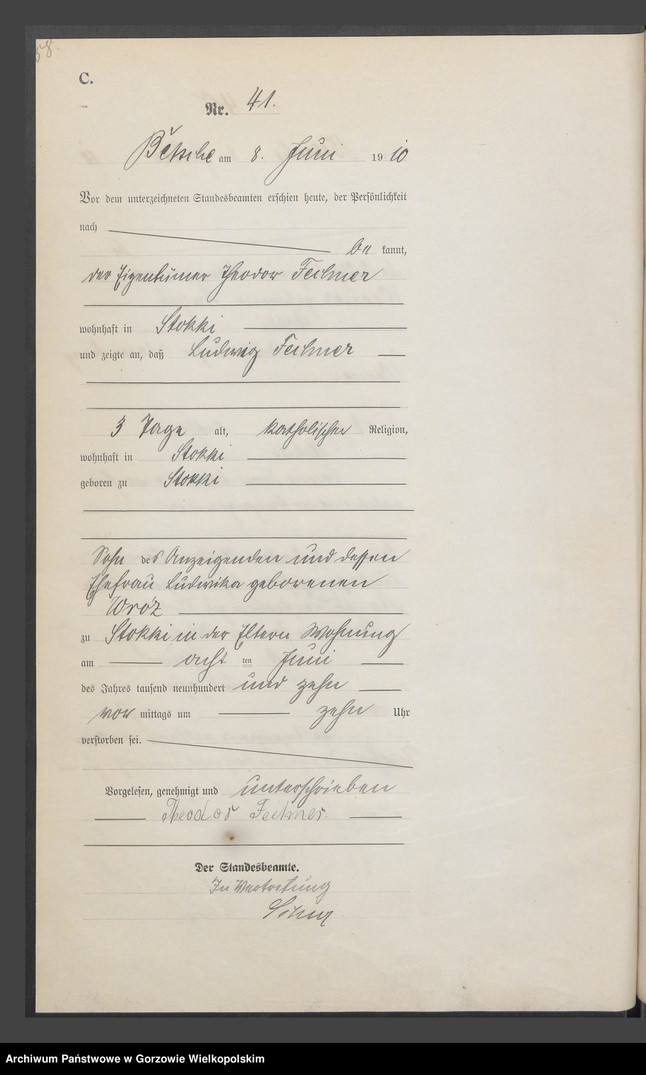 58.
C.
Nr. 41.
Betsche am 8. Juni 1910
Vor dem unterzeichneten Standesbeamten erschien heute, der Persönlichkeit
nach
be kannt,
der Eigentümer Theodor Fechner
wohnhaft in Stokki
und zeigte an, daß Ludwig Fechner
3 Tage alt, katholischer Religion,
wohnhaft in Stokki
geboren zu Stokki
Sohn des Anzeigenden und dessen
Ehefrau Ludwika geborenen
Wroz
zu Stokki in der Eltern Wohnung
am acht ten Juni
des Jahres tausend neunhundert und zehn
vor mittags um zehn Uhr
verstorben sei.
Vorgelesen, genehmigt und unterschrieben
Theodor Fechner
Der Standesbeamte.
In Vertretung
Archiwum Państwowe w Gorzowie Wielkopolskim